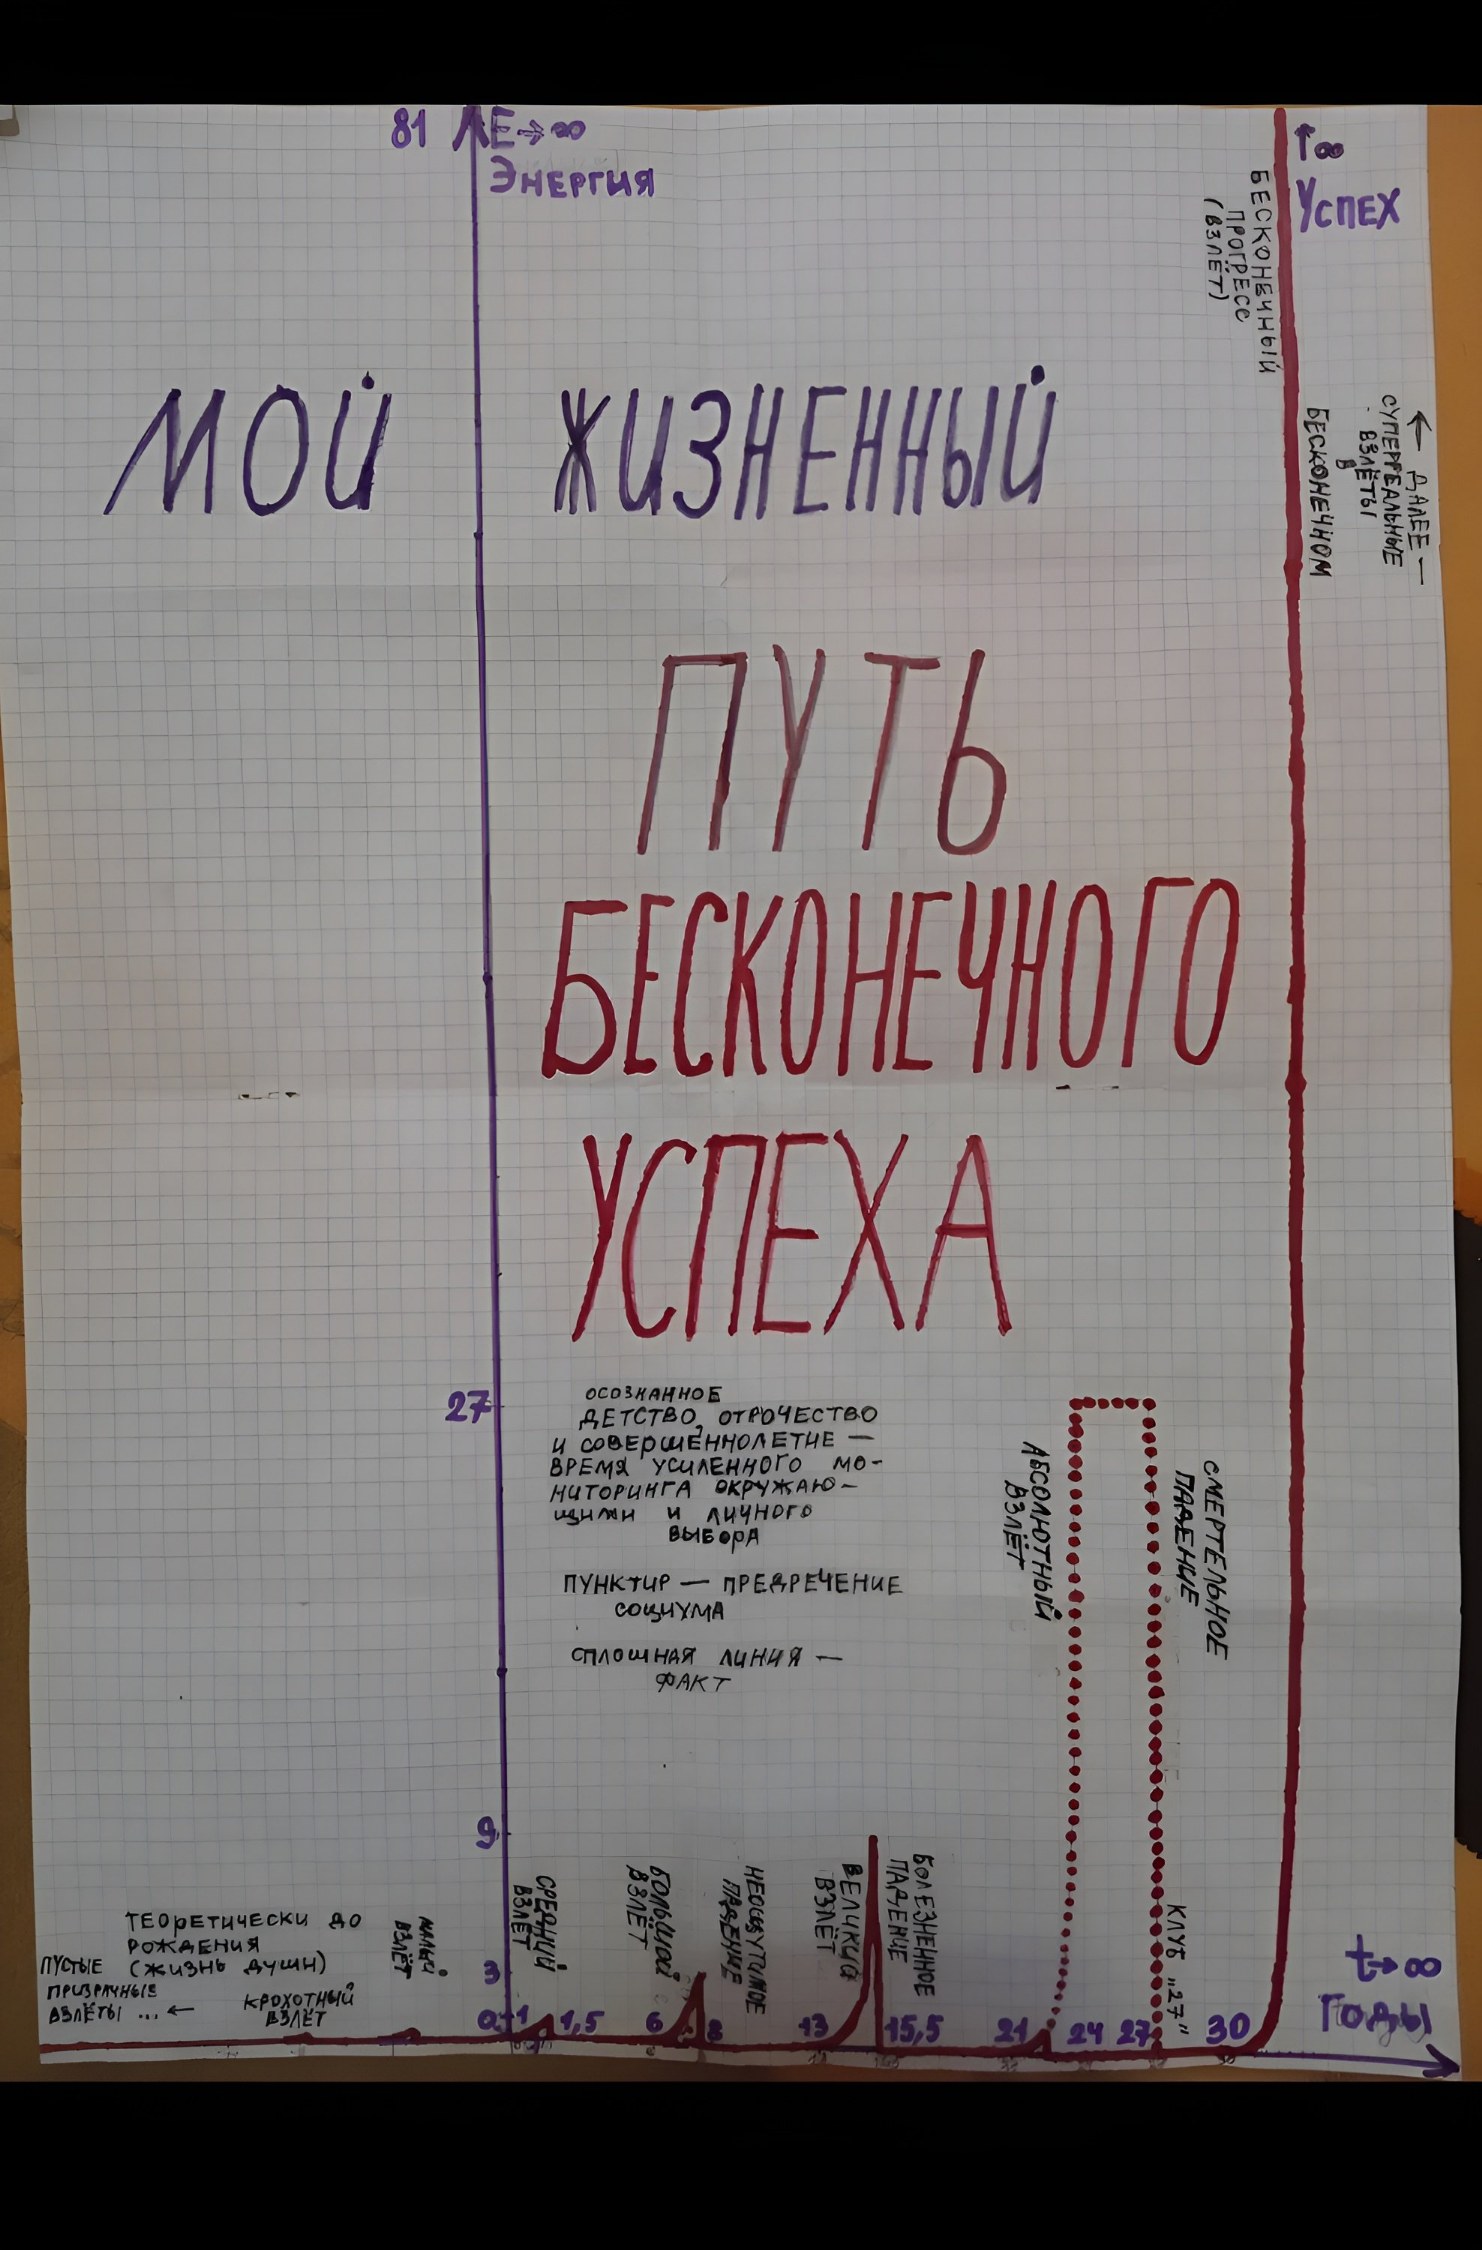 81 E→∞
Энергия
↑∞
Успех
БЕСКОНЕЧНЫЙ
ПРОГРЕСС
(ВЗЛЁТ)
← ДАЛЕЕ —
СУПЕРРЕАЛЬНЫЕ
ВЗЛЁТЫ
В
БЕСКОНЕЧНОМ
МОЙ ЖИЗНЕННЫЙ
ПУТЬ
БЕСКОНЕЧНОГО
УСПЕХА
27
ОСОЗНАННОЕ
ДЕТСТВО, ОТРОЧЕСТВО
И СОВЕРШЕННОЛЕТИЕ —
ВРЕМЯ УСИЛЕННОГО МО-
НИТОРИНГА ОКРУЖАЮ-
ЩИМИ И ЛИЧНОГО
ВЫБОРА
ПУНКТИР — ПРЕДРЕЧЕНИЕ
СОЦИУМА
СПЛОШНАЯ ЛИНИЯ —
ФАКТ
АБСОЛЮТНЫЙ
ВЗЛЁТ
СМЕРТЕЛЬНОЕ
ПАДЕНИЕ
КЛУБ „27"
9
3
ТЕОРЕТИЧЕСКИ ДО
РОЖДЕНИЯ
(ЖИЗНЬ ДУШИ)
ПУСТЫЕ
ПРИЗРАЧНЫЕ
ВЗЛЁТЫ ... ←
КРОХОТНЫЙ
ВЗЛЁТ
МАЛЫЙ
ВЗЛЁТ
СРЕДНИЙ
ВЗЛЁТ
БОЛЬШОЙ
ВЗЛЁТ
НЕОЩУТИМОЕ
ПАДЕНИЕ
ВЕЛИКИЙ
ВЗЛЁТ
БОЛЕЗНЕННОЕ
ПАДЕНИЕ
t→∞
Годы
0 1 1,5 6 8 13 15,5 21 24 27 30